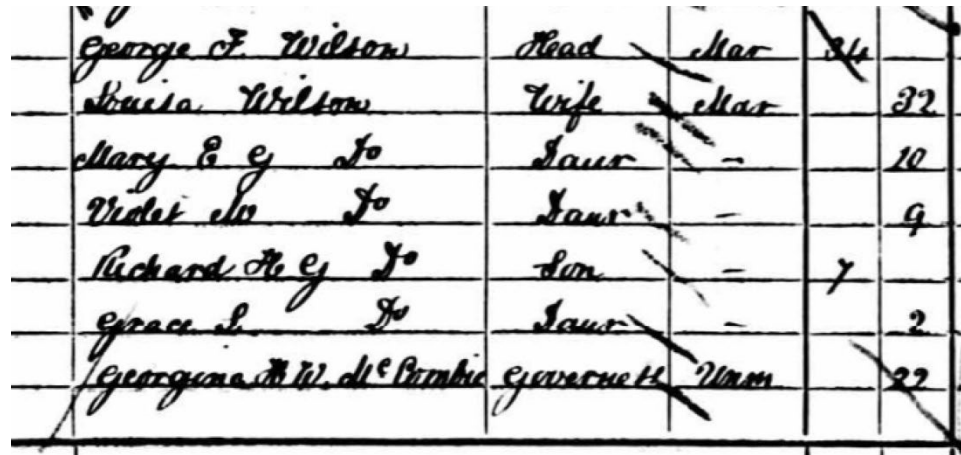 George F. Wilson Head Mar 34
Louisa Wilson Wife Mar 32
Mary E G Do Daur - 10
Violet M Do Daur - 9
Richard H G Do Son - 7
Grace L Do Daur - 2
Georgina H W. McCombie Governess Unm 22